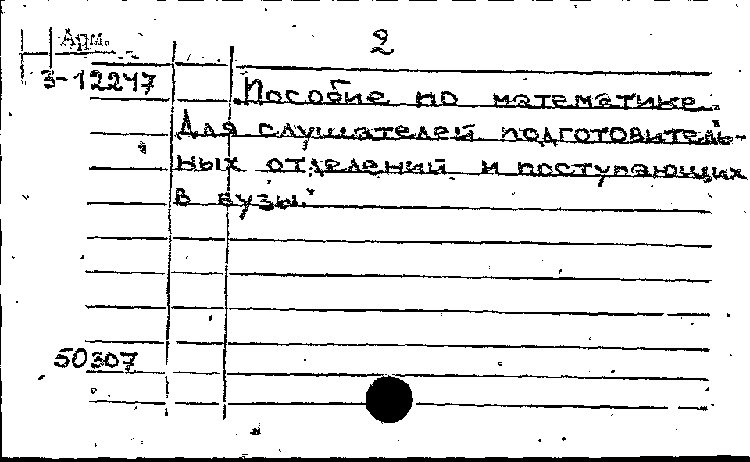 2
Арм.
З-12247
Пособие по математике.
Для слушателей подготовитель-
ных отделений и поступающих
в вузы."
50307